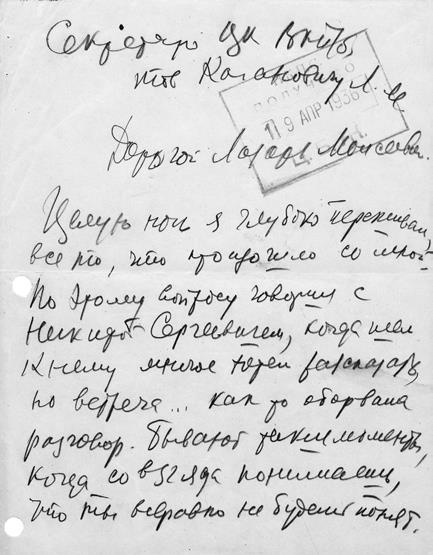 Секретарю ЦК ВКП(б)
тов Кагановичу Л М
ПОЛУЧЕНО
19 АПР 1936
Дорогой Лазарь Моисеевич.
Целую ночь я глубоко переживал
все то, что произошло со мной
По этому вопросу говорил с
Никитой Сергеевичем, когда шел
к нему многое хотел рассказать,
но встреча... как то оборвала
разговор. Бывают такие моменты,
когда со взгляда понимаешь,
что ты всеравно не будешь понят.